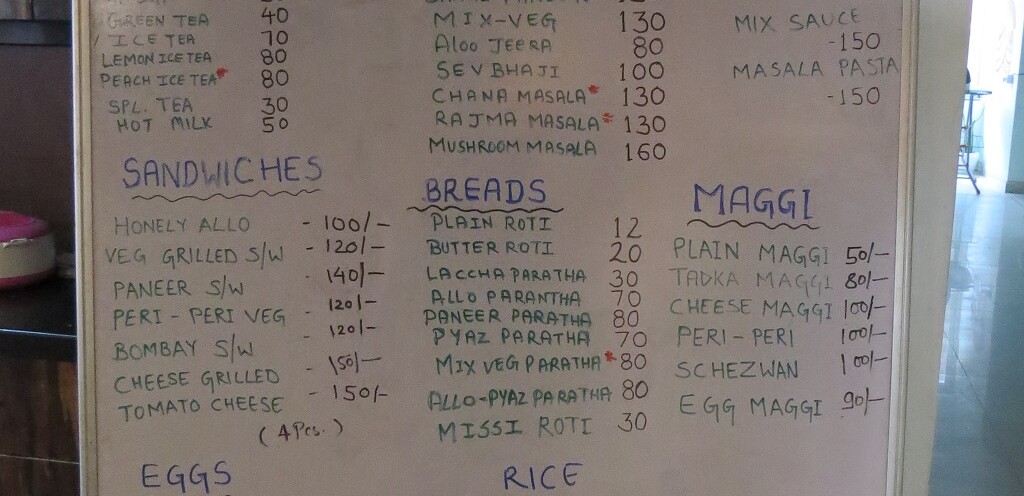 GREEN TEA 40
ICE TEA 70
LEMON ICE TEA 80
PEACH ICE TEA* 80
SPL. TEA 30
HOT MILK 50
SANDWICHES
HONELY ALLO - 100/-
VEG GRILLED S/W - 120/-
PANEER S/W - 140/-
PERI - PERI VEG - 120/-
BOMBAY S/W - 120/-
CHEESE GRILLED - 150/-
TOMATO CHEESE - 150/-
(4 Pcs.)
EGGS
MIX-VEG 130
ALOO JEERA 80
SEV BHAJI 100
CHANA MASALA* 130
RAJMA MASALA* 130
MUSHROOM MASALA 160
BREADS
PLAIN ROTI 12
BUTTER ROTI 20
LACCHA PARATHA 30
ALLO PARANTHA 70
PANEER PARATHA 80
PYAZ PARATHA 70
MIX VEG PARATHA* 80
ALLO-PYAZ PARATHA 80
MISSI ROTI 30
RICE
MIX SAUCE
-150
MASALA PASTA
-150
MAGGI
PLAIN MAGGI 50/-
TADKA MAGGI 80/-
CHEESE MAGGI 100/-
PERI-PERI 100/-
SCHEZWAN 100/-
EGG MAGGI 90/-